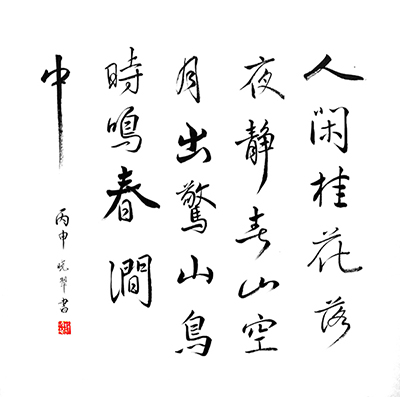 人閑桂花落
夜靜春山空
月出驚山鳥
時鳴春澗
中
丙申悅翠書